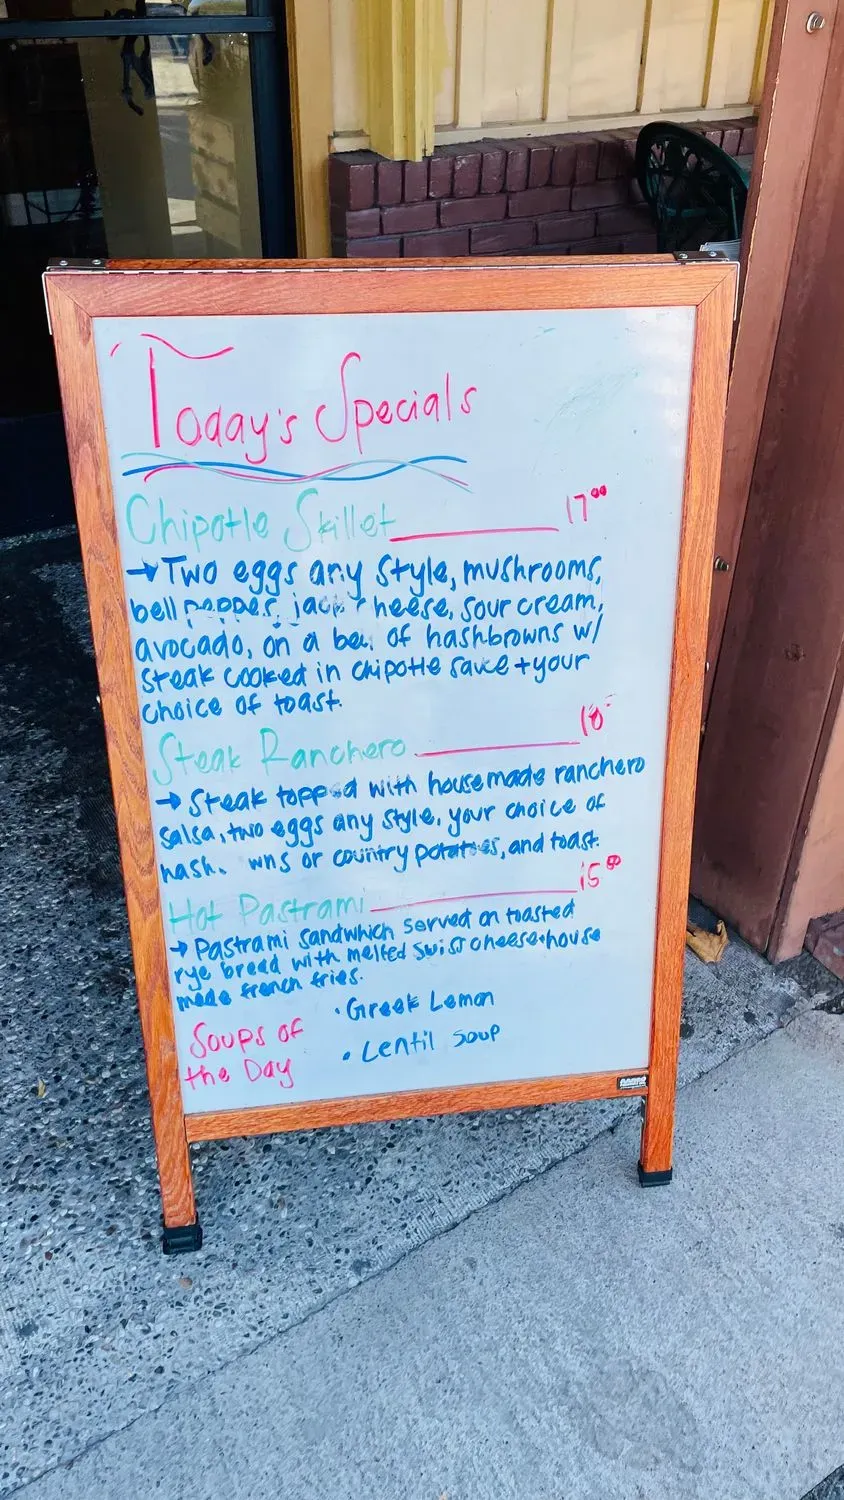 Today's Specials
Chipotle Skillet 17⁰⁰
→ Two eggs any style, mushrooms,
bell pepper, jack cheese, sour cream,
avocado, on a bed of hashbrowns w/
steak cooked in chipotle sauce + your
choice of toast.
Steak Ranchero
→ Steak topped with housemade ranchero
salsa, two eggs any style, your choice of
or country potatoes, and toast.
Hot Pastrami 15⁵⁰
→ Pastrami sandwhich served on toasted
rye bread with melted swiss cheese + house
made french fries.
Soups of
the Day
• Greek Lemon
• Lentil Soup